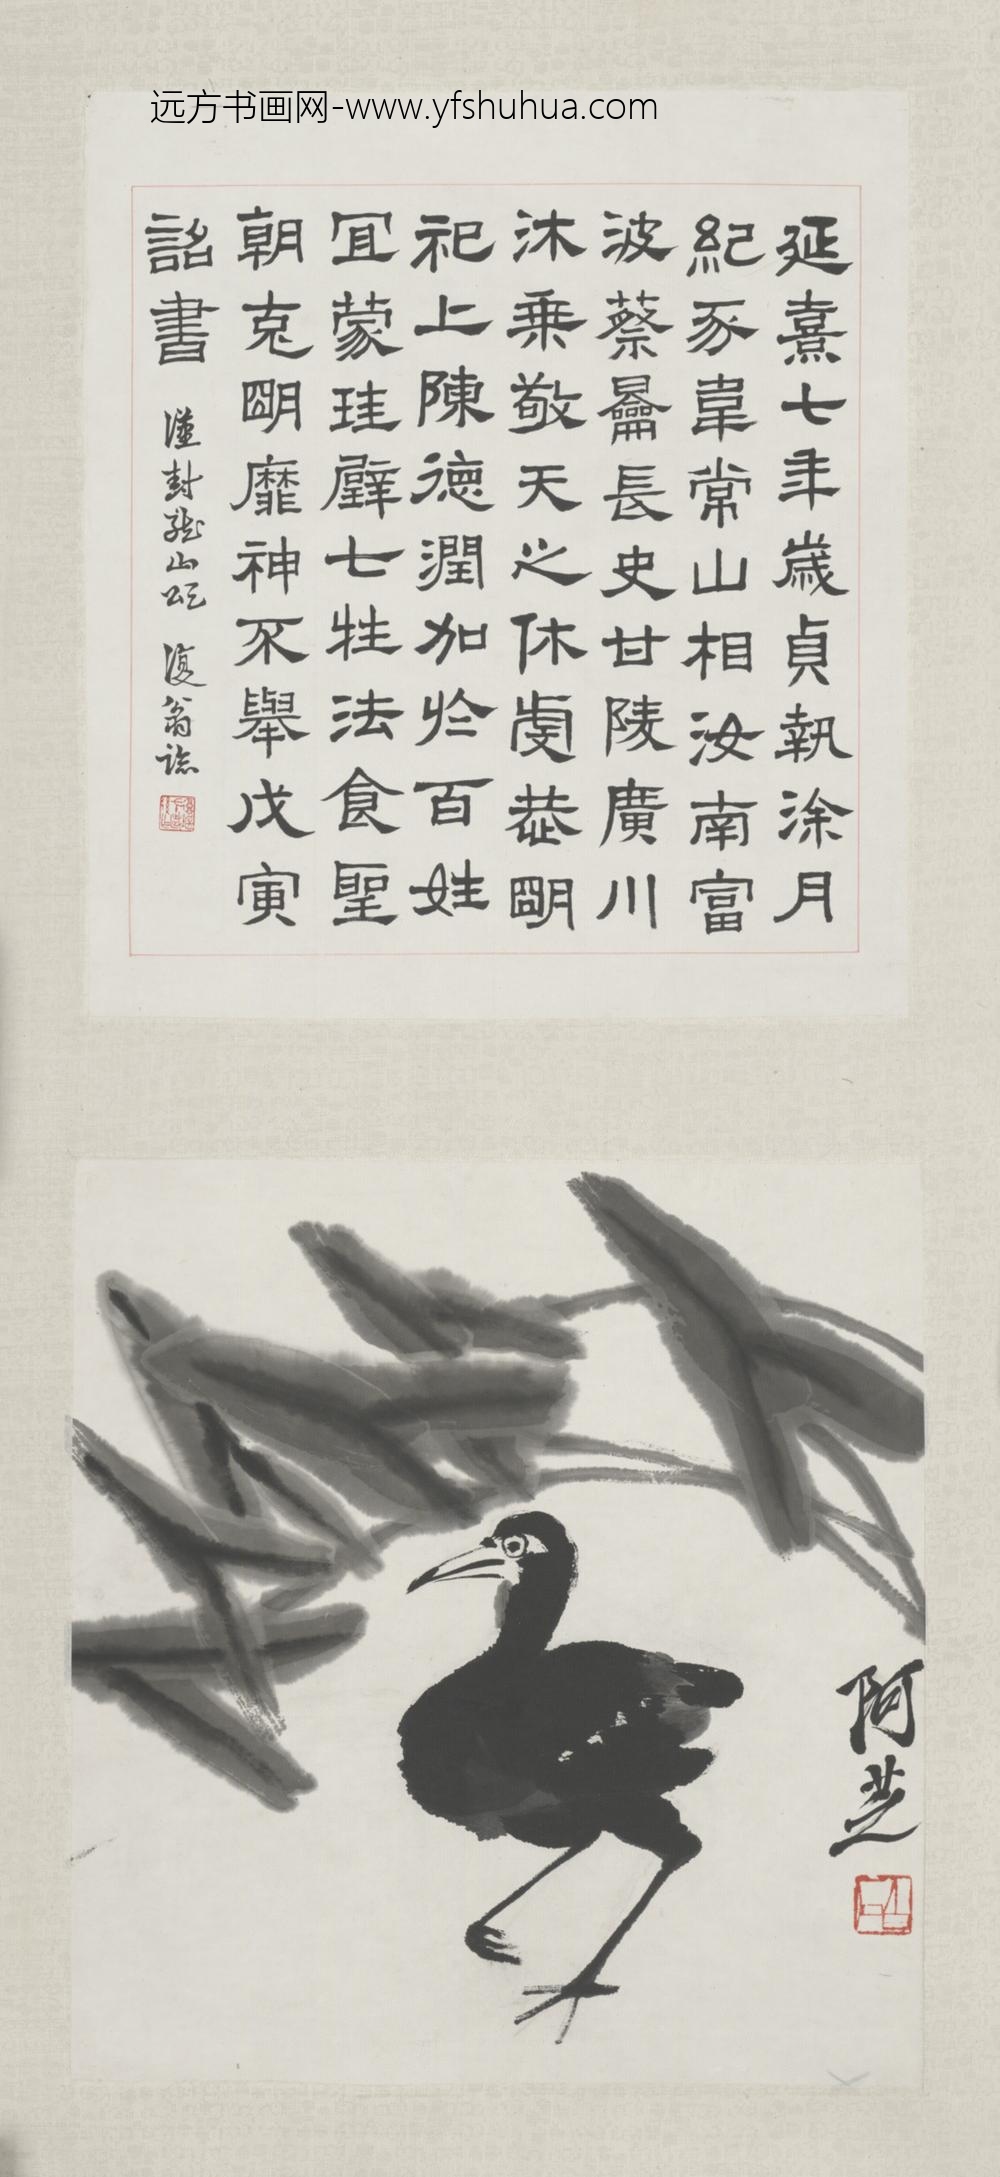 远方书画网-www.yfshuhua.com
延熹七年歲貞執涂月
紀豕韋常山相汝南富
波蔡長史甘陵廣川
沐乗敬天之休虔恭明
祀上陳德潤加於百姓
宜蒙珪璧七牲法食聖
朝克明靡神不舉戊寅
詔書 漢封龍山頌 復翁臨
阿芝